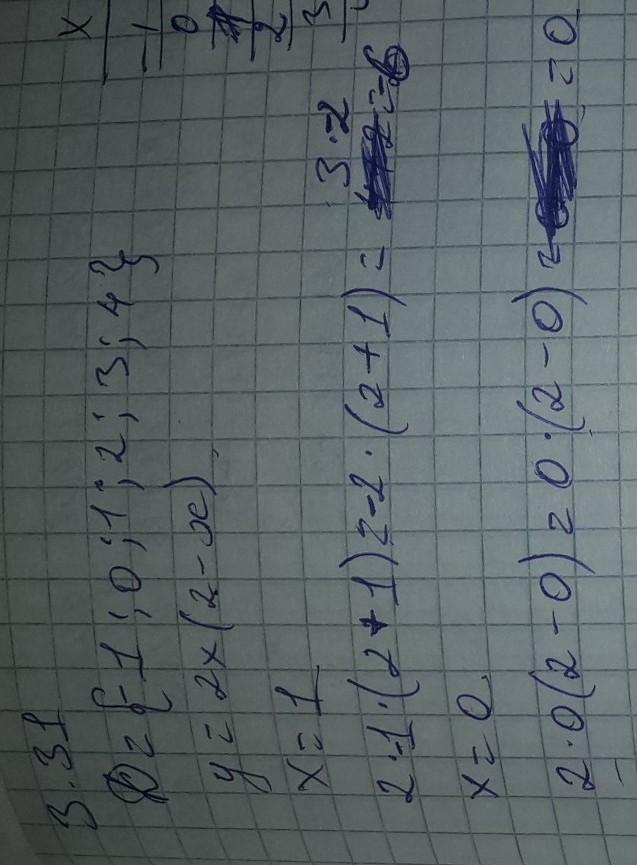 3.31
D = {-1; 0; 1; 2; 3; 4}
y = 2x(2-x)
x = 1
2·-1·(2+1) = -2·(2+1) = 3·-2 = -6
x = 0
2·0(2-0) = 0·(2-0) = 0
x -1 0 2 3